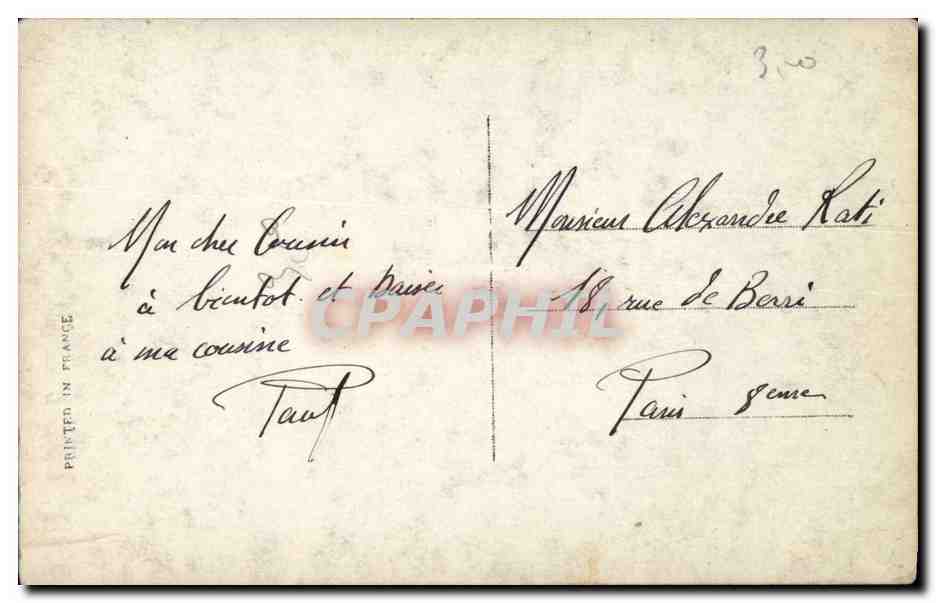 3,00
Mon cher Cousin
à bientot et Baiser
à ma cousine
Paul
Monsieur Alexandre Rati
18, rue de Berri
Paris 8eme
PRINTED IN FRANCE
CPAPHIL